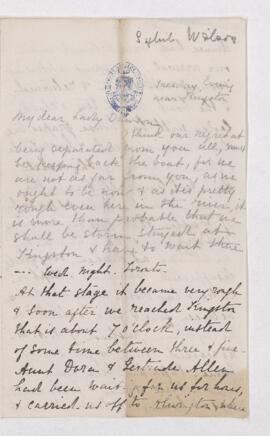 Sybil Wilson
Tuesday Evening
near Kingston
My dear Lady
I think our regret at
being separated from you all, must
be keeping back the boat, for we
are not as far from you, as we
ought to be now & as it is pretty
rough even here in the river, it
is more than probable that we
shall be storm stayed at
Kingston & have to wait there
--- Wed. night. Toronto.
At that stage it became very rough
& soon after we reached Kingston
that is about 7 o'clock, instead
of some time between three & five.
Aunt Dora & Gertrude Allen
had been wait- for us for hours,
& carried us off to Alwington where